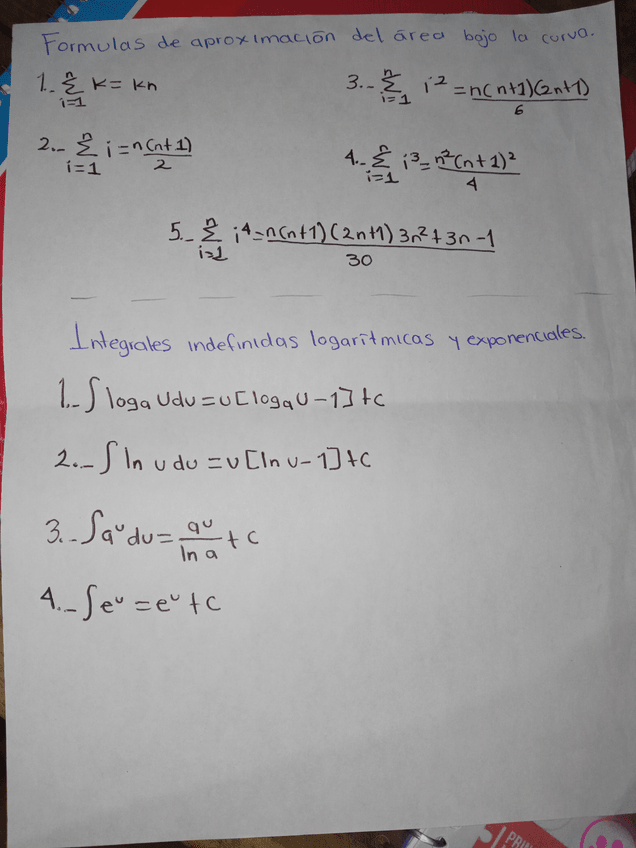 Formulas de aproximación del área bajo la curva.
1.- n Σ i=1 K = Kn
3.- n Σ i=1 i² = n(n+1)(2n+1) / 6
2.- n Σ i=1 i = n(n+1) / 2
4.- n Σ i=1 i³ = n²(n+1)² / 4
5.- n Σ i=1 i⁴ = n(n+1)(2n+1) 3n²+3n-1 / 30
Integrales indefinidas logarítmicas y exponenciales.
1.- ∫ logₐ u du = u[logₐ u - 1] + c
2.- ∫ ln u du = u[ln u - 1] + c
3.- ∫ aᵘ du = aᵘ / ln a + c
4.- ∫ eᵘ = eᵘ + c